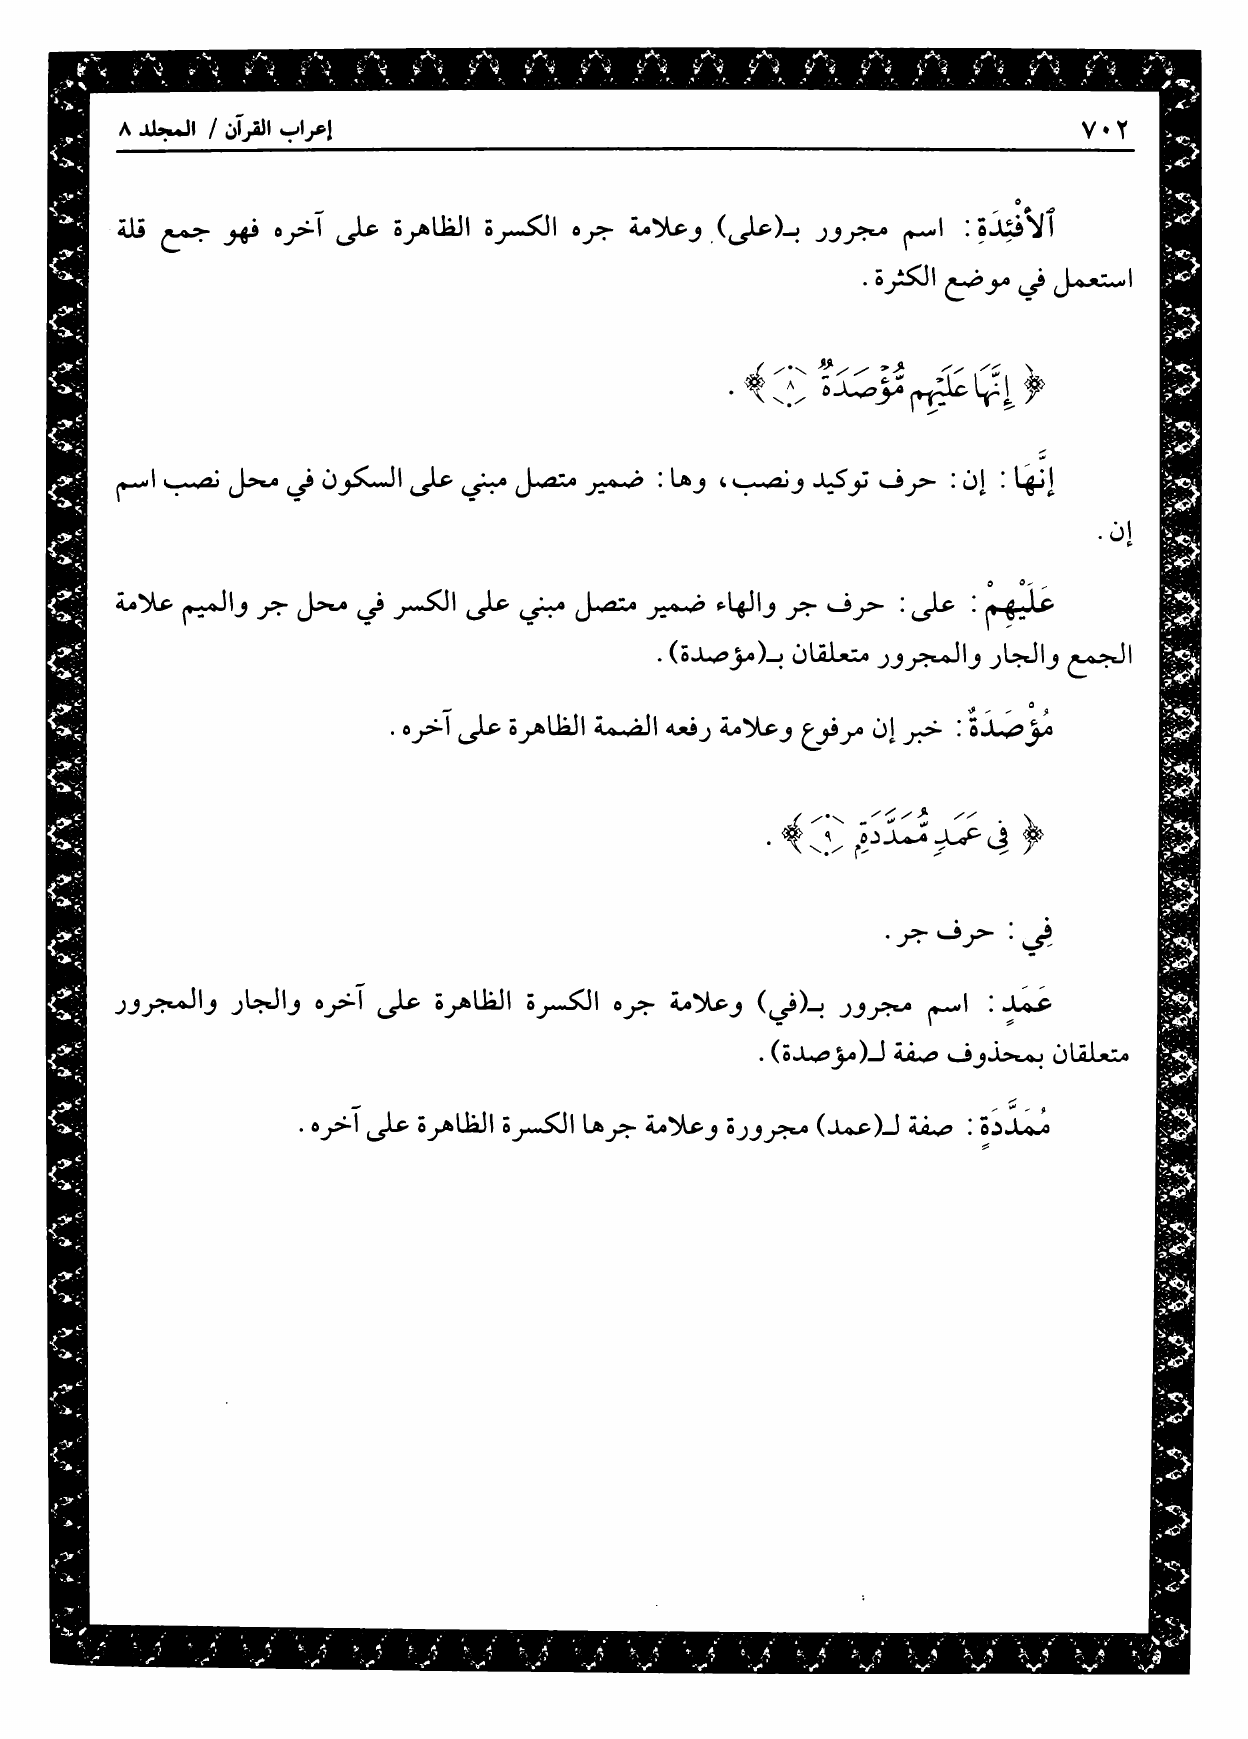 ٧٠٢ إعراب القرآن / المجلد ٨
ٱلأَفْئِدَةِ: اسم مجرور بـ(على) وعلامة جره الكسرة الظاهرة على آخره فهو جمع قلة
استعمل في موضع الكثرة.
﴿ إِنَّهَا عَلَيْهِم مُّؤْصَدَةٌ ٨ ﴾.
إِنَّهَا: إن: حرف توكيد ونصب، وها: ضمير متصل مبني على السكون في محل نصب اسم
إن.
عَلَيْهِمْ: على: حرف جر والهاء ضمير متصل مبني على الكسر في محل جر والميم علامة
الجمع والجار والمجرور متعلقان بـ(مؤصدة).
مُؤْصَدَةٌ: خبر إن مرفوع وعلامة رفعه الضمة الظاهرة على آخره.
﴿ فِى عَمَدٍ مُّمَدَّدَةٍ ٩ ﴾.
فِي: حرف جر.
عَمَدٍ: اسم مجرور بـ(في) وعلامة جره الكسرة الظاهرة على آخره والجار والمجرور
متعلقان بمحذوف صفة لـ(مؤصدة).
مُمَدَّدَةٍ: صفة لـ(عمد) مجرورة وعلامة جرها الكسرة الظاهرة على آخره.